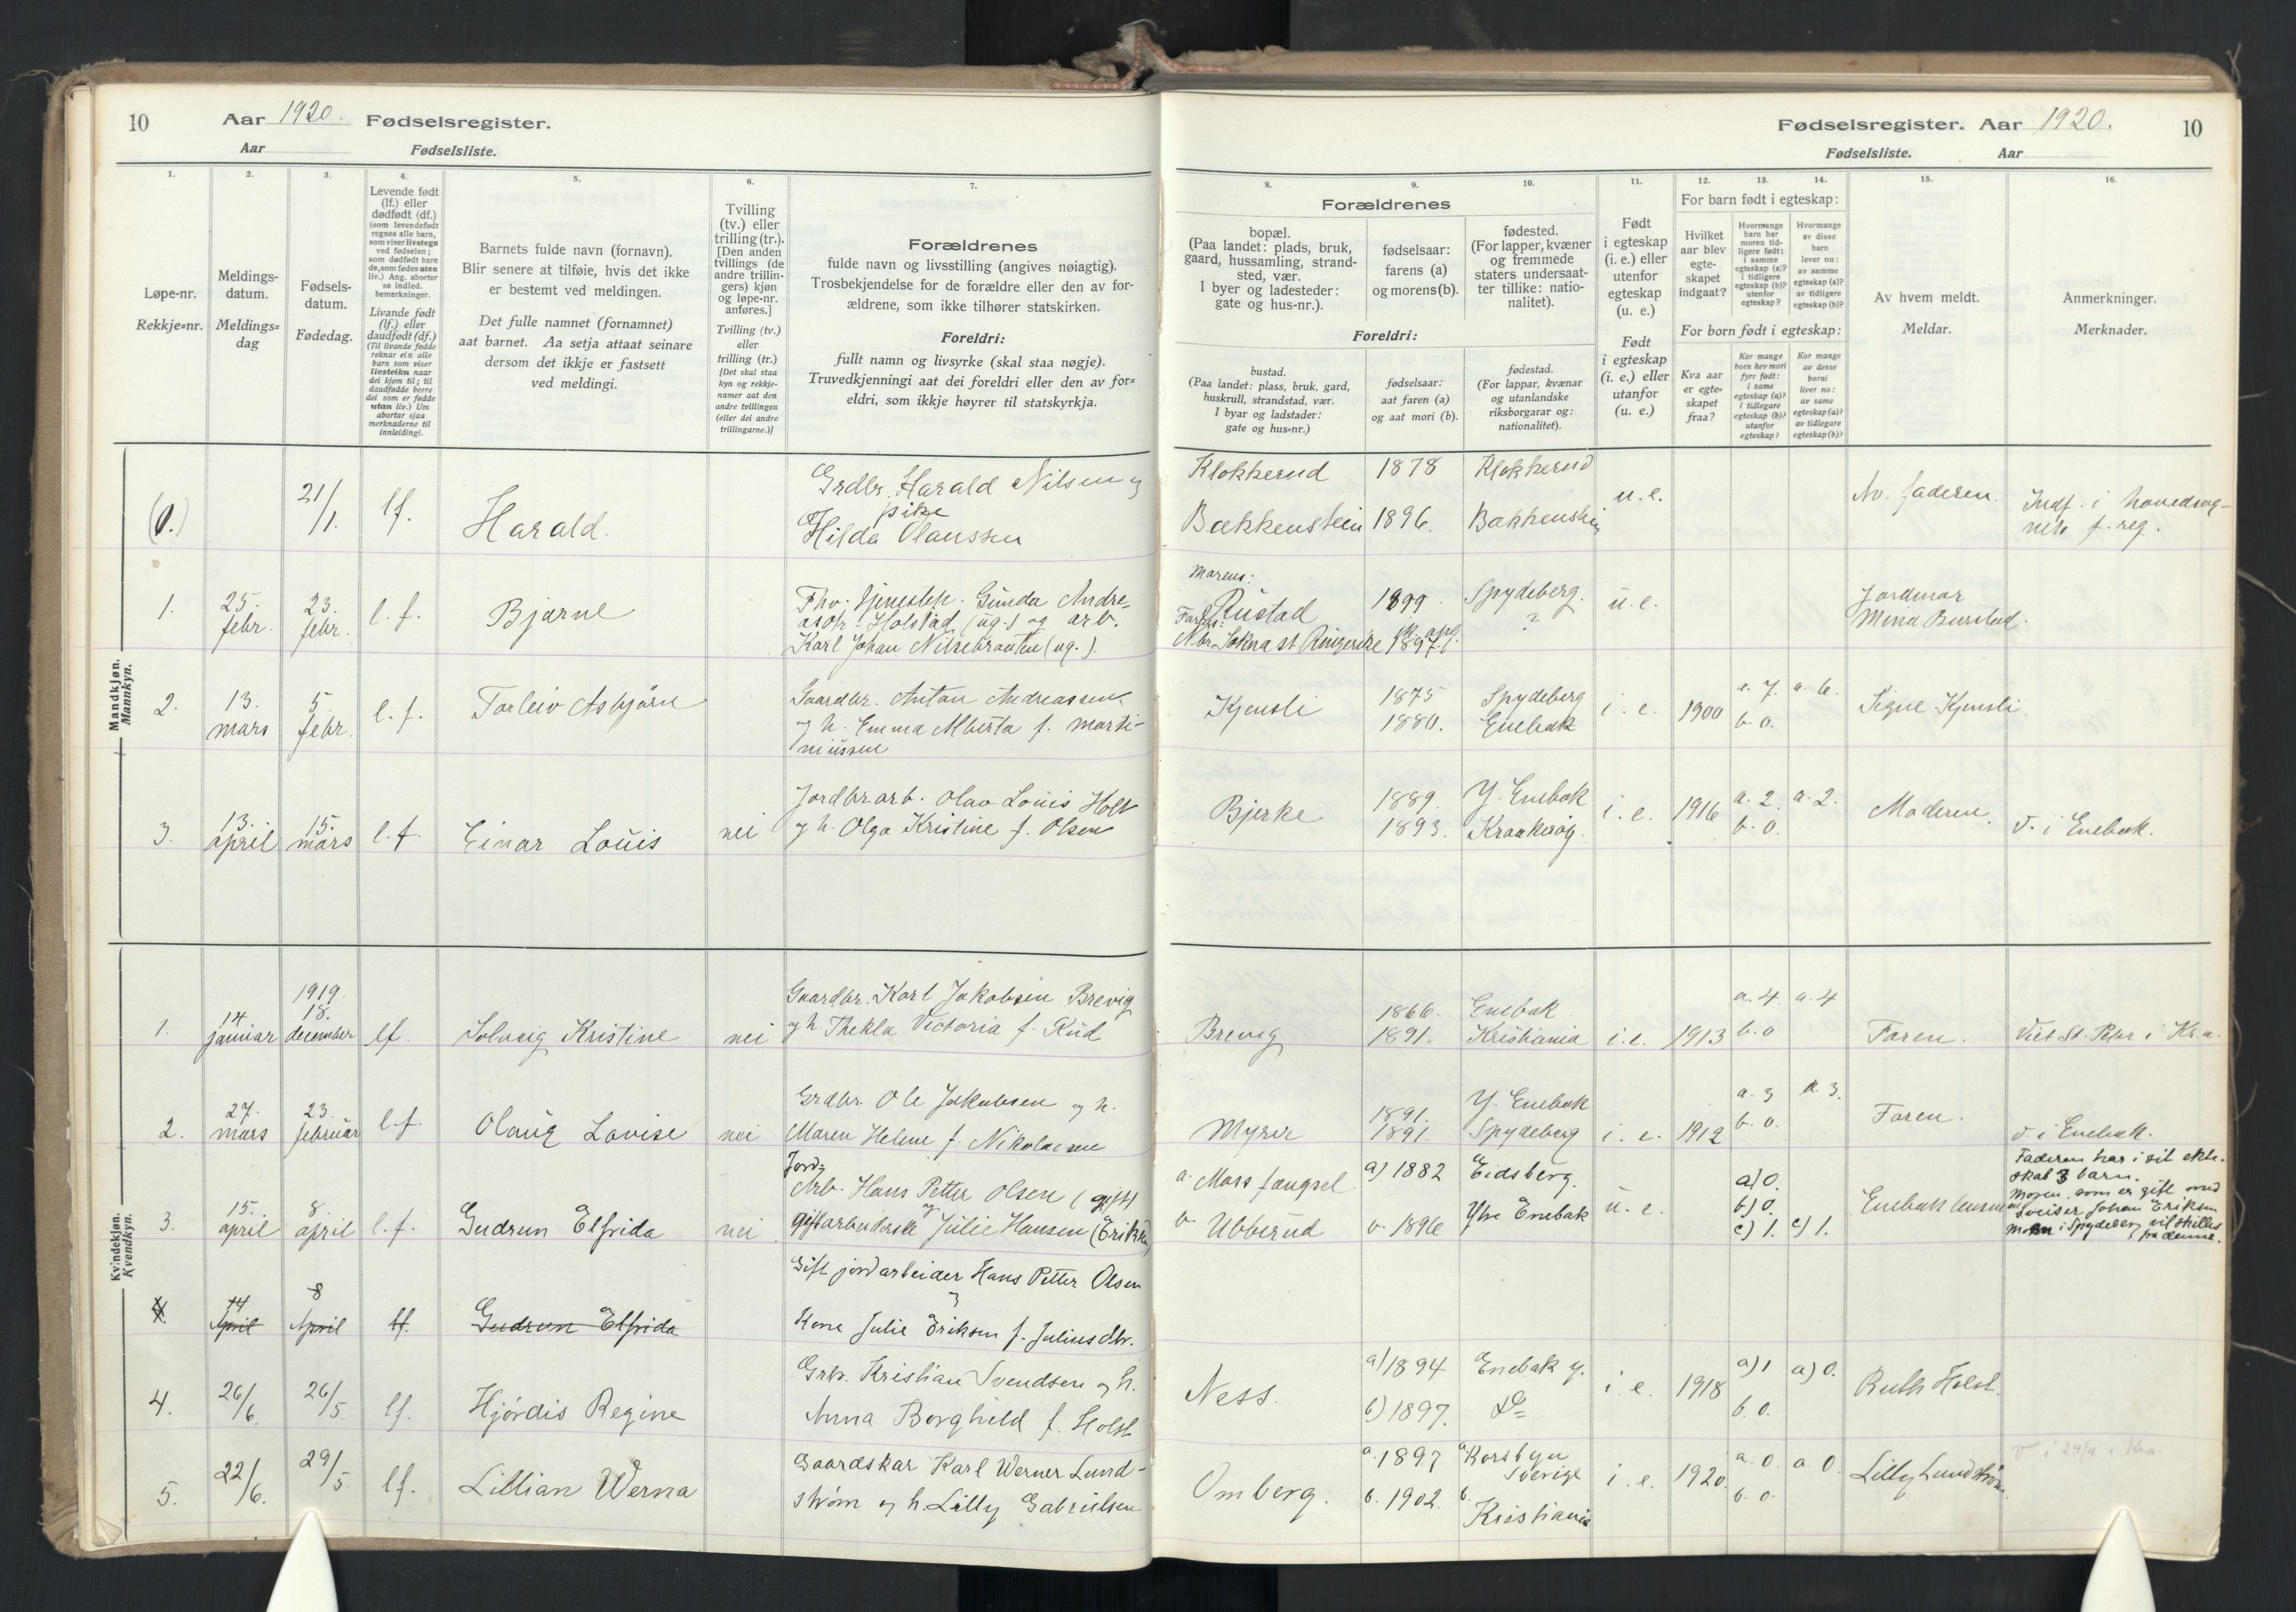 10 Aar 1920. Fødselsregister.
Aar Fødselsliste.
Fødselsregister. Aar 1920. 10
Fødselsliste. Aar
1. 2. 3. 4. 5. 6. 7.
Løpe-nr.
Rekkje=nr.
Meldings-
datum.
Meldings=
dag
Fødsels-
datum.
Fødedag.
Levende født
(lf.) eller
dødfødt (df.)
(som levendefødt
regnes alle barn,
som viser livstegn
ved fødselen;
som dødfødt bare
de, som fødes uten
liv.) Ang. aborter
se indled.
bemerkninger.
Livande født
(lf.) eller
daudfødt (df.)
(Til livande fødde
reknar ein alle
barn som viser
livsteikn naar
dei kjem til; til
daudfødde berre
dei som er fødde
utan liv.) Um
abortar sjaa
merknaderne til
innleidingi.
Barnets fulde navn (fornavn).
Blir senere at tilføie, hvis det ikke
er bestemt ved meldingen.
Det fulle namnet (fornamnet)
aat barnet. Aa setja attaat seinare
dersom det ikkje er fastsett
ved meldingi.
Tvilling
(tv.) eller
trilling (tr.).
[Den anden
tvillings (de
andre trillin-
gers) kjøn
og løpe-nr.
anføres.]
Tvilling (tv.)
eller
trilling (tr.)
[Det skal staa
kyn og rekkje-
numer aat den
andre tvillingen
(eller dei andre
trillingarne.)]
Forældrenes
fulde navn og livsstilling (angives nøiagtig).
Trosbekjendelse for de forældre eller den av for-
ældrene, som ikke tilhører statskirken.
Foreldri:
fullt namn og livsyrke (skal staa nøgje).
Truvedkjenningi aat dei foreldri eller den av for=
eldri, som ikkje høyrer til statskyrkja.
8. 9. 10. 11. 12. 13. 14. 15. 16.
Forældrenes
bopæl.
(Paa landet: plads, bruk,
gaard, hussamling, strand-
sted, vær.
I byer og ladesteder:
gate og hus-nr.).
fødselsaar:
farens (a)
og morens (b).
fødested.
(For lapper, kvæner
og fremmede
staters undersaat-
ter tillike: natio-
nalitet).
Foreldri:
bustad.
(Paa landet: plass, bruk, gard,
huskrull, strandstad, vær.
I byar og ladstader:
gate og hus=nr.)
fødselsaar:
aat faren (a)
og aat mori (b).
fødestad.
(For lappar, kvænar
og utanlandske
riksborgarar og:
nationalitet).
Født
i egteskap
(i. e.) eller
utenfor
egteskap
(u. e.)
Født
i egteskap
(i. e.) eller
utanfor
egteskap
(u. e.)
For barn født i egteskap:
Hvilket
aar blev
egte-
skapet
indgaat?
Hvormange
barn har
moren tid-
ligere født:
i samme
egteskap (a)?
i tidligere
egteskap (b)?
utenfor
egteskap?
Hvormange
av disse
barn
lever nu:
av samme
egteskap (a)?
av tidligere
egteskap (b)?
For born født i egteskap:
Kva aar
er egte=
skapet
fraa?
Kor mange
born hev mori
fyrr født:
i same
egteskap (a)?
i tidlegare
egteskap (b)?
utanfor
egteskap?
Kor mange
av desse
borni
liver no:
av same
egteskap (a)?
av tidlegare
egteskap (b)?
Av hvem meldt.
Meldar.
Anmerkninger.
Merknader.
Mandkjøn.
Mannkyn.
(0.) 21/1. lf. Harald. Grdbr. Harald Nilsen og
pike
Hilda Olaussen
Klokkerud 1878 Klokkerud
Bækkenstein 1896. Bækkenstein
u. e. Av. faderen. Indf. i hovedsog-
nets f. reg.
1. 25. febr. 23. febr. l. f. Bjarne Fhv. tjeneste. Gunda Andre-
asdtr. Holstad (ug.) og arb.
Karl Johan Nilsebraaten (ug.).
Morens:
Rustad 1899. Spydeberg. u. e.
Farens: ?
N. br. Sokna st. Ringerike 1897.
Jordmor
Mina Burstad.
2. 13. mars 5. febr. l. f. Torleiv Asbjørn Gaardbr. Anton Andreassen
og h. Emma Alberta f. Marti-
niussen
Kjensli 1875 Spydeberg
1880. Enebak
i. e. 1900 a. 7. a. 6.
b. 0.
Signe Kjensli
3. 13. april 15. mars l. f. Einar Louis nei Jordbrarb. Olav Louis Holt
og h. Olga Kristine f. Olsen
Bjerke 1889. Y. Enebak
1893. Kraakerøy.
i. e. 1916 a. 2. a. 2.
b. 0.
Moderen. v. i Enebak.
Kvindekjøn.
Kvendkyn.
1. 14 januar 1919. 18. december lf. Solveig Kristine nei Gaardbr. Karl Jakobsen Brevig
og h. Thekla Victoria f. Rud
Brevig 1866. Enebak
1891. Kristiania
i. e. 1913 a. 4. a. 4
b. 0
Faren. Viet St. Petr i Kr.a.
2. 27. mars 23. februar l. f. Olaug Lovise nei Grdbr. Ole Jakobsen og h.
Maren Helene f. Nikolaisen
Myrer 1891. Y. Enebak
1891. Spydeberg
i. e. 1912 a. 3 a. 3.
b. 0.
Faren. v. i Enebak.
3. 15. april 8. april l. f. Gudrun Elfrida nei Jord-
Arb. Hans Petter Olsen (gift)
og
gift arbeiderske Julie Hansen (Eriksen)
a. Moss fængsel a) 1882 Eidsberg.
b. Ubberud b. 1896 Ytre Enebak
u. e. a) 0.
b) 0.
c) 1. c) 1.
Enebak lensm
Faderen har i sit ekte-
skab 3 barn.
Moren, som er gift med
sveiser Johan Eriksen
i Spydeberg, vil skilles
fra denne.
4. 14 April 8 April lf. Gudrun Elfrida Gift jordarbeider Hans Petter Olsen
og
Kone Julie Eriksen f. Juliusdtr.
4. 26/6. 26/5. lf. Hjørdis Regine Grbr. Kristian Svendsen og h.
Anna Borghild f. Holst
Ness. a) 1894 Enebak y.
b) 1897. Do
i. e. 1918 a) 1 a) 0.
b. 0.
Ruth Holst.
5. 22/6. 29/5. lf. Lillian Werna Gaardskar Karl Werner Lund-
strøm og h. Lilly Gabrielsen
Omberg. a. 1897 a. Korsbyn
Sverige
b. 1902. b. Kristiania
i. e. 1920. a. 0. a. 0.
b. 0.
Lilly Lundstrøm.
V. i 24/4 i Kra.